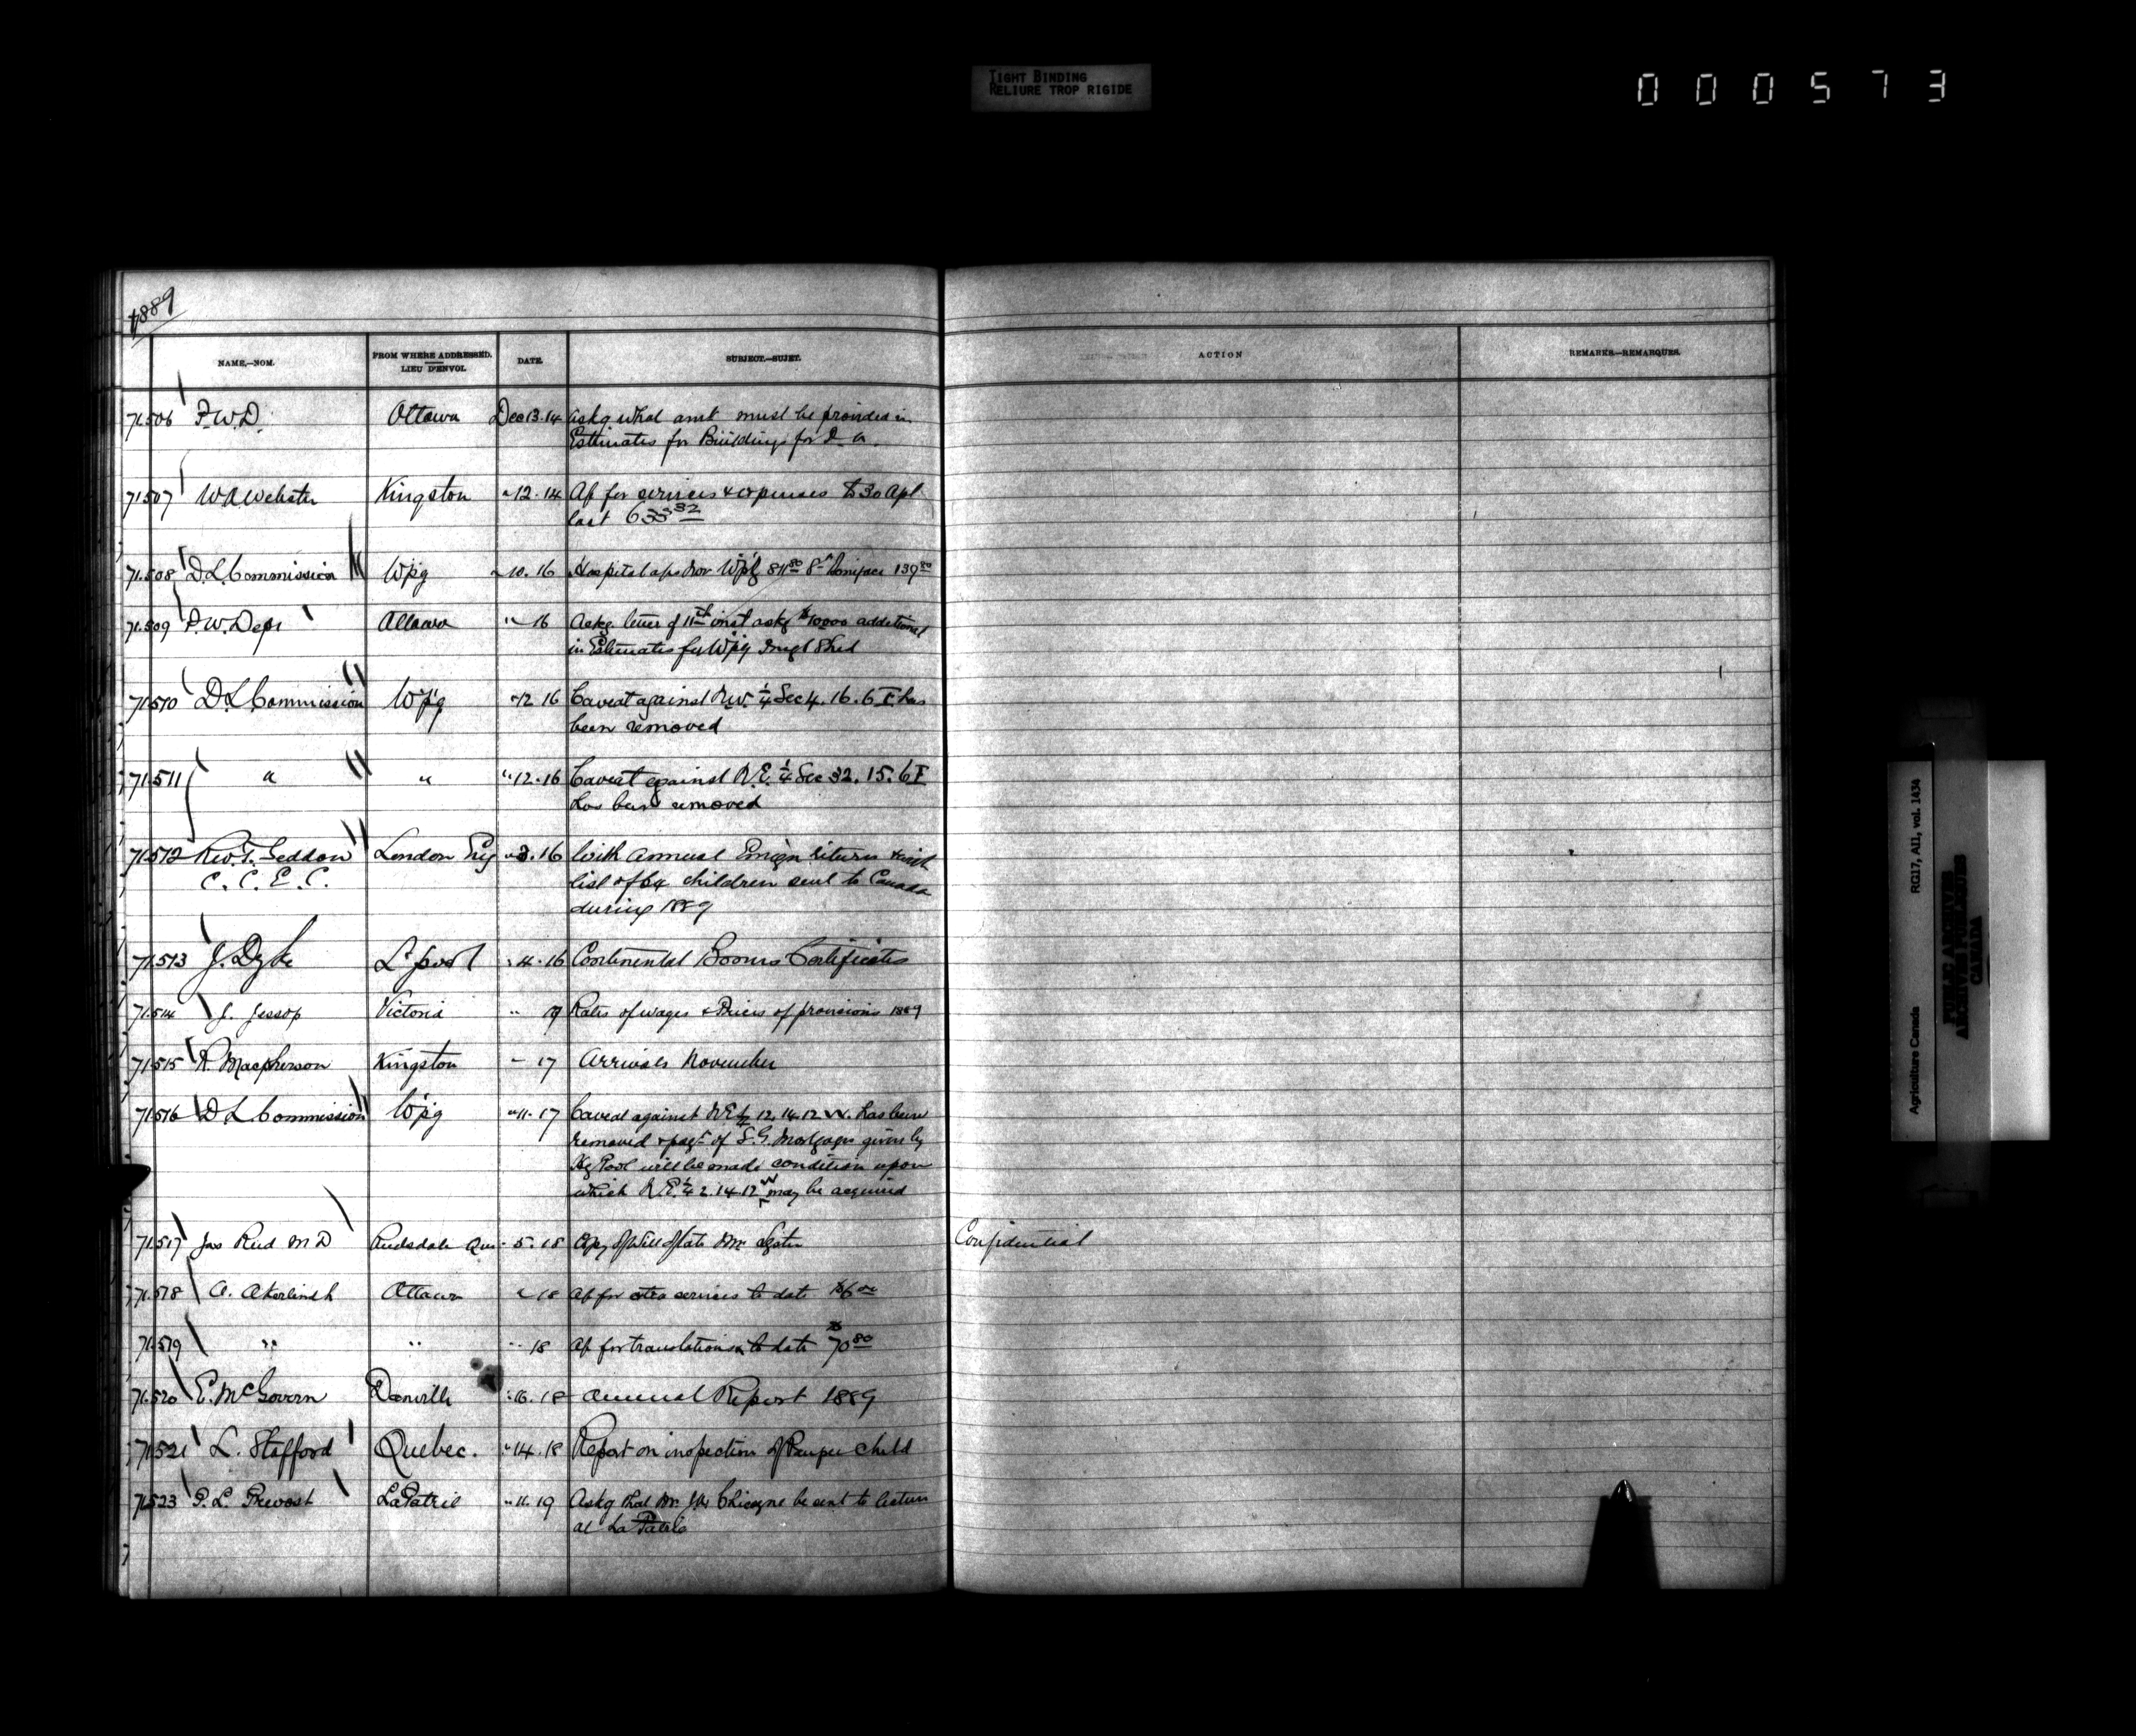 TIGHT BINDING
RELIURE TROP RIGIDE
000573
1889
NAME.—NOM.
FROM WHERE ADDRESSED.
LIEU D'ENVOI.
DATE.
SUBJECT.—SUJET.
ACTION
REMARKS—REMARQUES.
71.506 P.W.D. Ottawa Dec 13.14 askg what amt must be provided in
Estimates for Buildings for D. a.
71507 W A Webster Kingston " 12.14 A/c for services & expenses to 30 Apl
last 633 32
71.508 D.L. Commission Wpg " 10.16 Hospital a/cs Nov Wpg 811 80 St Boniface 139 80
71.509 P.W. Dept Ottawa " 16 Askg. letter of 11th inst askg $10000 additional
in Estimates for Wpg Imgt Shed
71510 D L Commission Wpg " 12 16 Caveat against N.W. 1/4 Sec 4. 16. 6 E has
been removed
71.511 " " " 12.16 Caveat against N.E. 1/4 Sec 32. 15. 6 E
has been removed
71512 Rev. J. Seddon London Eng " 3.16 With annual Emign return & with
C. C. E. C.
list of 64 children sent to Canada
during 1889
71513 J. Dyke L'pool " 4.16 Continental Bonus Certificates
71.514 J. Jessop Victoria " 9 Rates of wages & Prices of provisions 1889
71515 R. Macpherson Kingston " 17 Arrivals November
71516 D L Commission Wpg " 11.17 Caveat against N E 1/4 12. 14. 12 W. has been
removed & pagt of S.G. Mortgages given by
will be made condition upon
which N.E. 1/4 2. 14 12 W may be acquired
71.517 Jas Reid M D Que " 5.18 Copy of Will of late Mr
Confidential
71.518 A. Akerlindh Ottawa " 18 A/c for extra services to date $6 00
71.519 " " " 18 A/c for translations to date $70 80
71.520 E. McGovern Danville " 16.18 Annual Report 1889
71521 L. Stafford Quebec. " 14.18 Report on inspection of Pauper child
71523 P. L. Prevost La Patrie " 11.19 Askg that Mr. Chicoyne be sent to lecture
at La Patrie
Agriculture Canada RG17, AI1, vol. 1434
PUBLIC ARCHIVES
ARCHIVES PUBLIQUES
CANADA